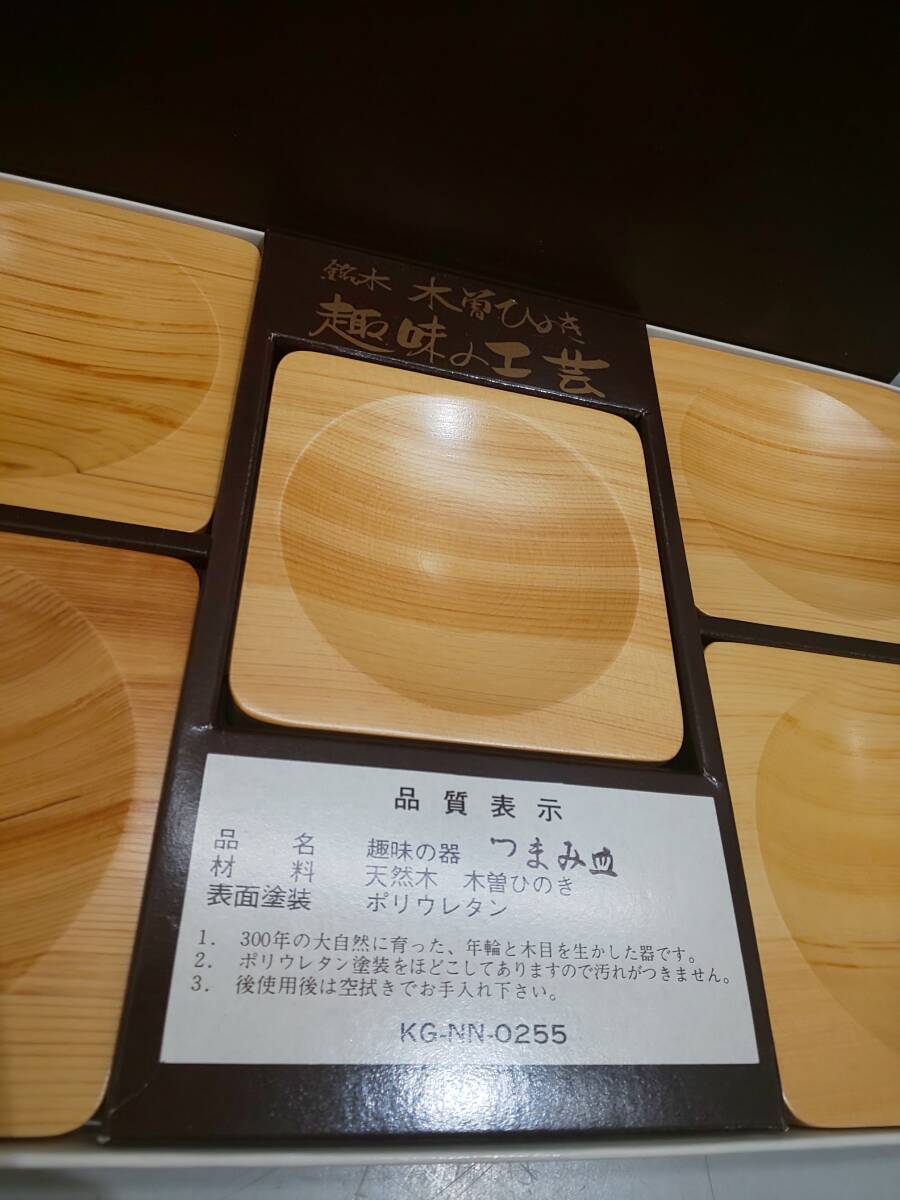 銘木 木曽ひのき
趣味の工芸
品質表示
品名 趣味の器 つまみ皿
材料 天然木 木曽ひのき
表面塗装 ポリウレタン
1. 300年の大自然に育った、年輪と木目を生かした器です。
2. ポリウレタン塗装をほどこしてありますので汚れがつきません。
3. 後使用後は空拭きでお手入れ下さい。
KG-NN-0255